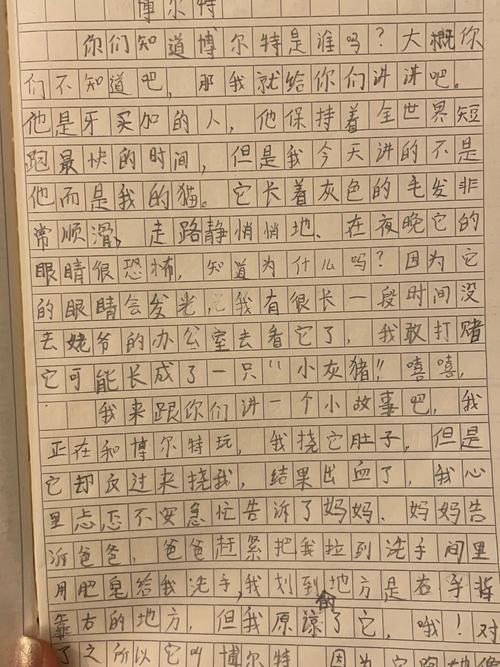 博尔特
你们知道博尔特是谁吗？大概你
们不知道吧，那我就给你们讲讲吧。
他是牙买加的人，他保持着全世界短
跑最快的时间，但是我今天讲的不是
他而是我的猫。它长着灰色的毛发非
常顺滑，走路静悄悄地、在夜晚它的
眼睛很恐怖，知道为什么吗？因为它
的眼睛会发光，我有很长一段时间没
去姥爷的办公室去看它了，我敢打赌
它可能长成了一只“小灰猪”嘻嘻，
我来跟你们讲一个小故事吧，我
正在和博尔特玩，我挠它肚子，但是
它却反过来挠我，结果出血了，我心
里忐忑不安急忙告诉了妈妈、妈妈告
诉爸爸，爸爸赶紧把我拉到洗手间里
用肥皂给我洗手，我划到的地方是右手背
靠右的地方，但我原谅了它，哦！对
了之所以它叫博尔特 因为它跑